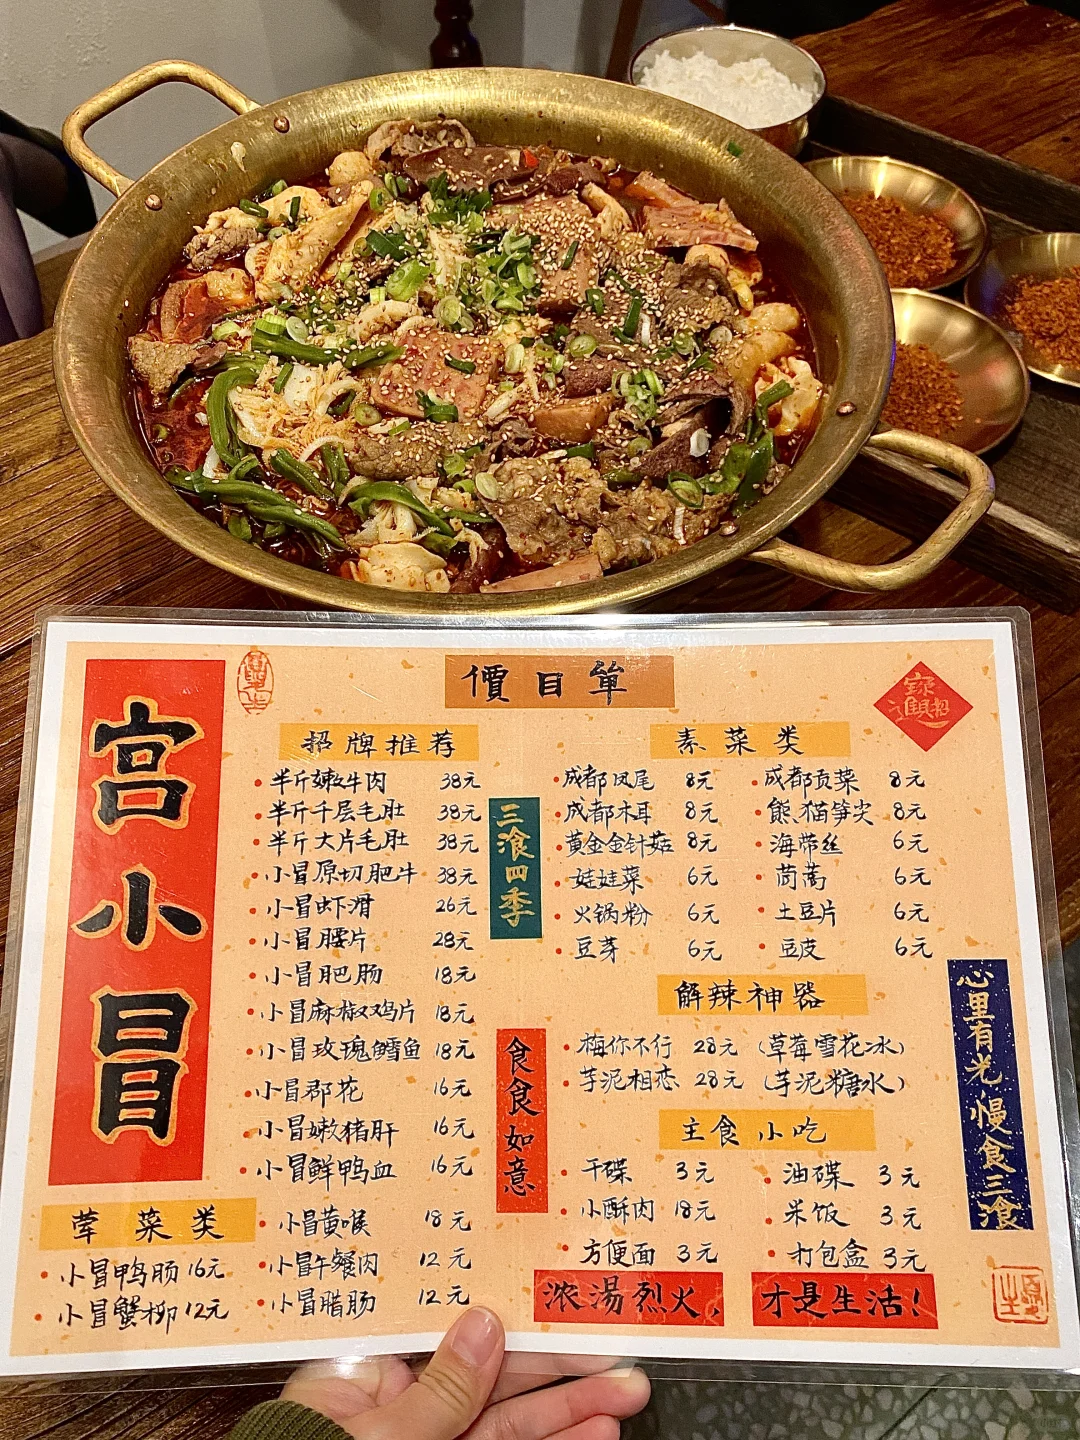 價目單
宫小冒
招财進寳
招牌推荐
半斤嫩牛肉 38元
半斤千层毛肚 38元
半斤大片毛肚 38元
小冒原切肥牛 38元
小冒虾滑 26元
小冒腰片 28元
小冒肥肠 18元
小冒麻椒双鸡片 18元
小冒玫瑰鳕鱼 18元
小冒郡花 16元
小冒嫩猪肝 16元
小冒鲜鸭血 16元
荤菜类
小冒鸭肠 16元
小冒蟹柳 12元
小冒黄喉 18元
小冒午餐肉 12元
小冒腊肠 12元
三飡四季
食食如意
素菜类
成都凤尾 8元
成都贡菜 8元
成都木耳 8元
熊猫笋尖 8元
黄金金针菇 8元
海带丝 6元
娃娃菜 6元
茼蒿 6元
火锅粉 6元
土豆片 6元
豆芽 6元
豆皮 6元
解辣神器
梅你不行 28元 (草莓雪花冰)
芋泥相恋 28元 (芋泥糖水)
主食小吃
干碟 3元
油碟 3元
小酥肉 18元
米饭 3元
方便面 3元
打包盒 3元
浓湯烈火，
才是生活！
心里有光 慢食三飡